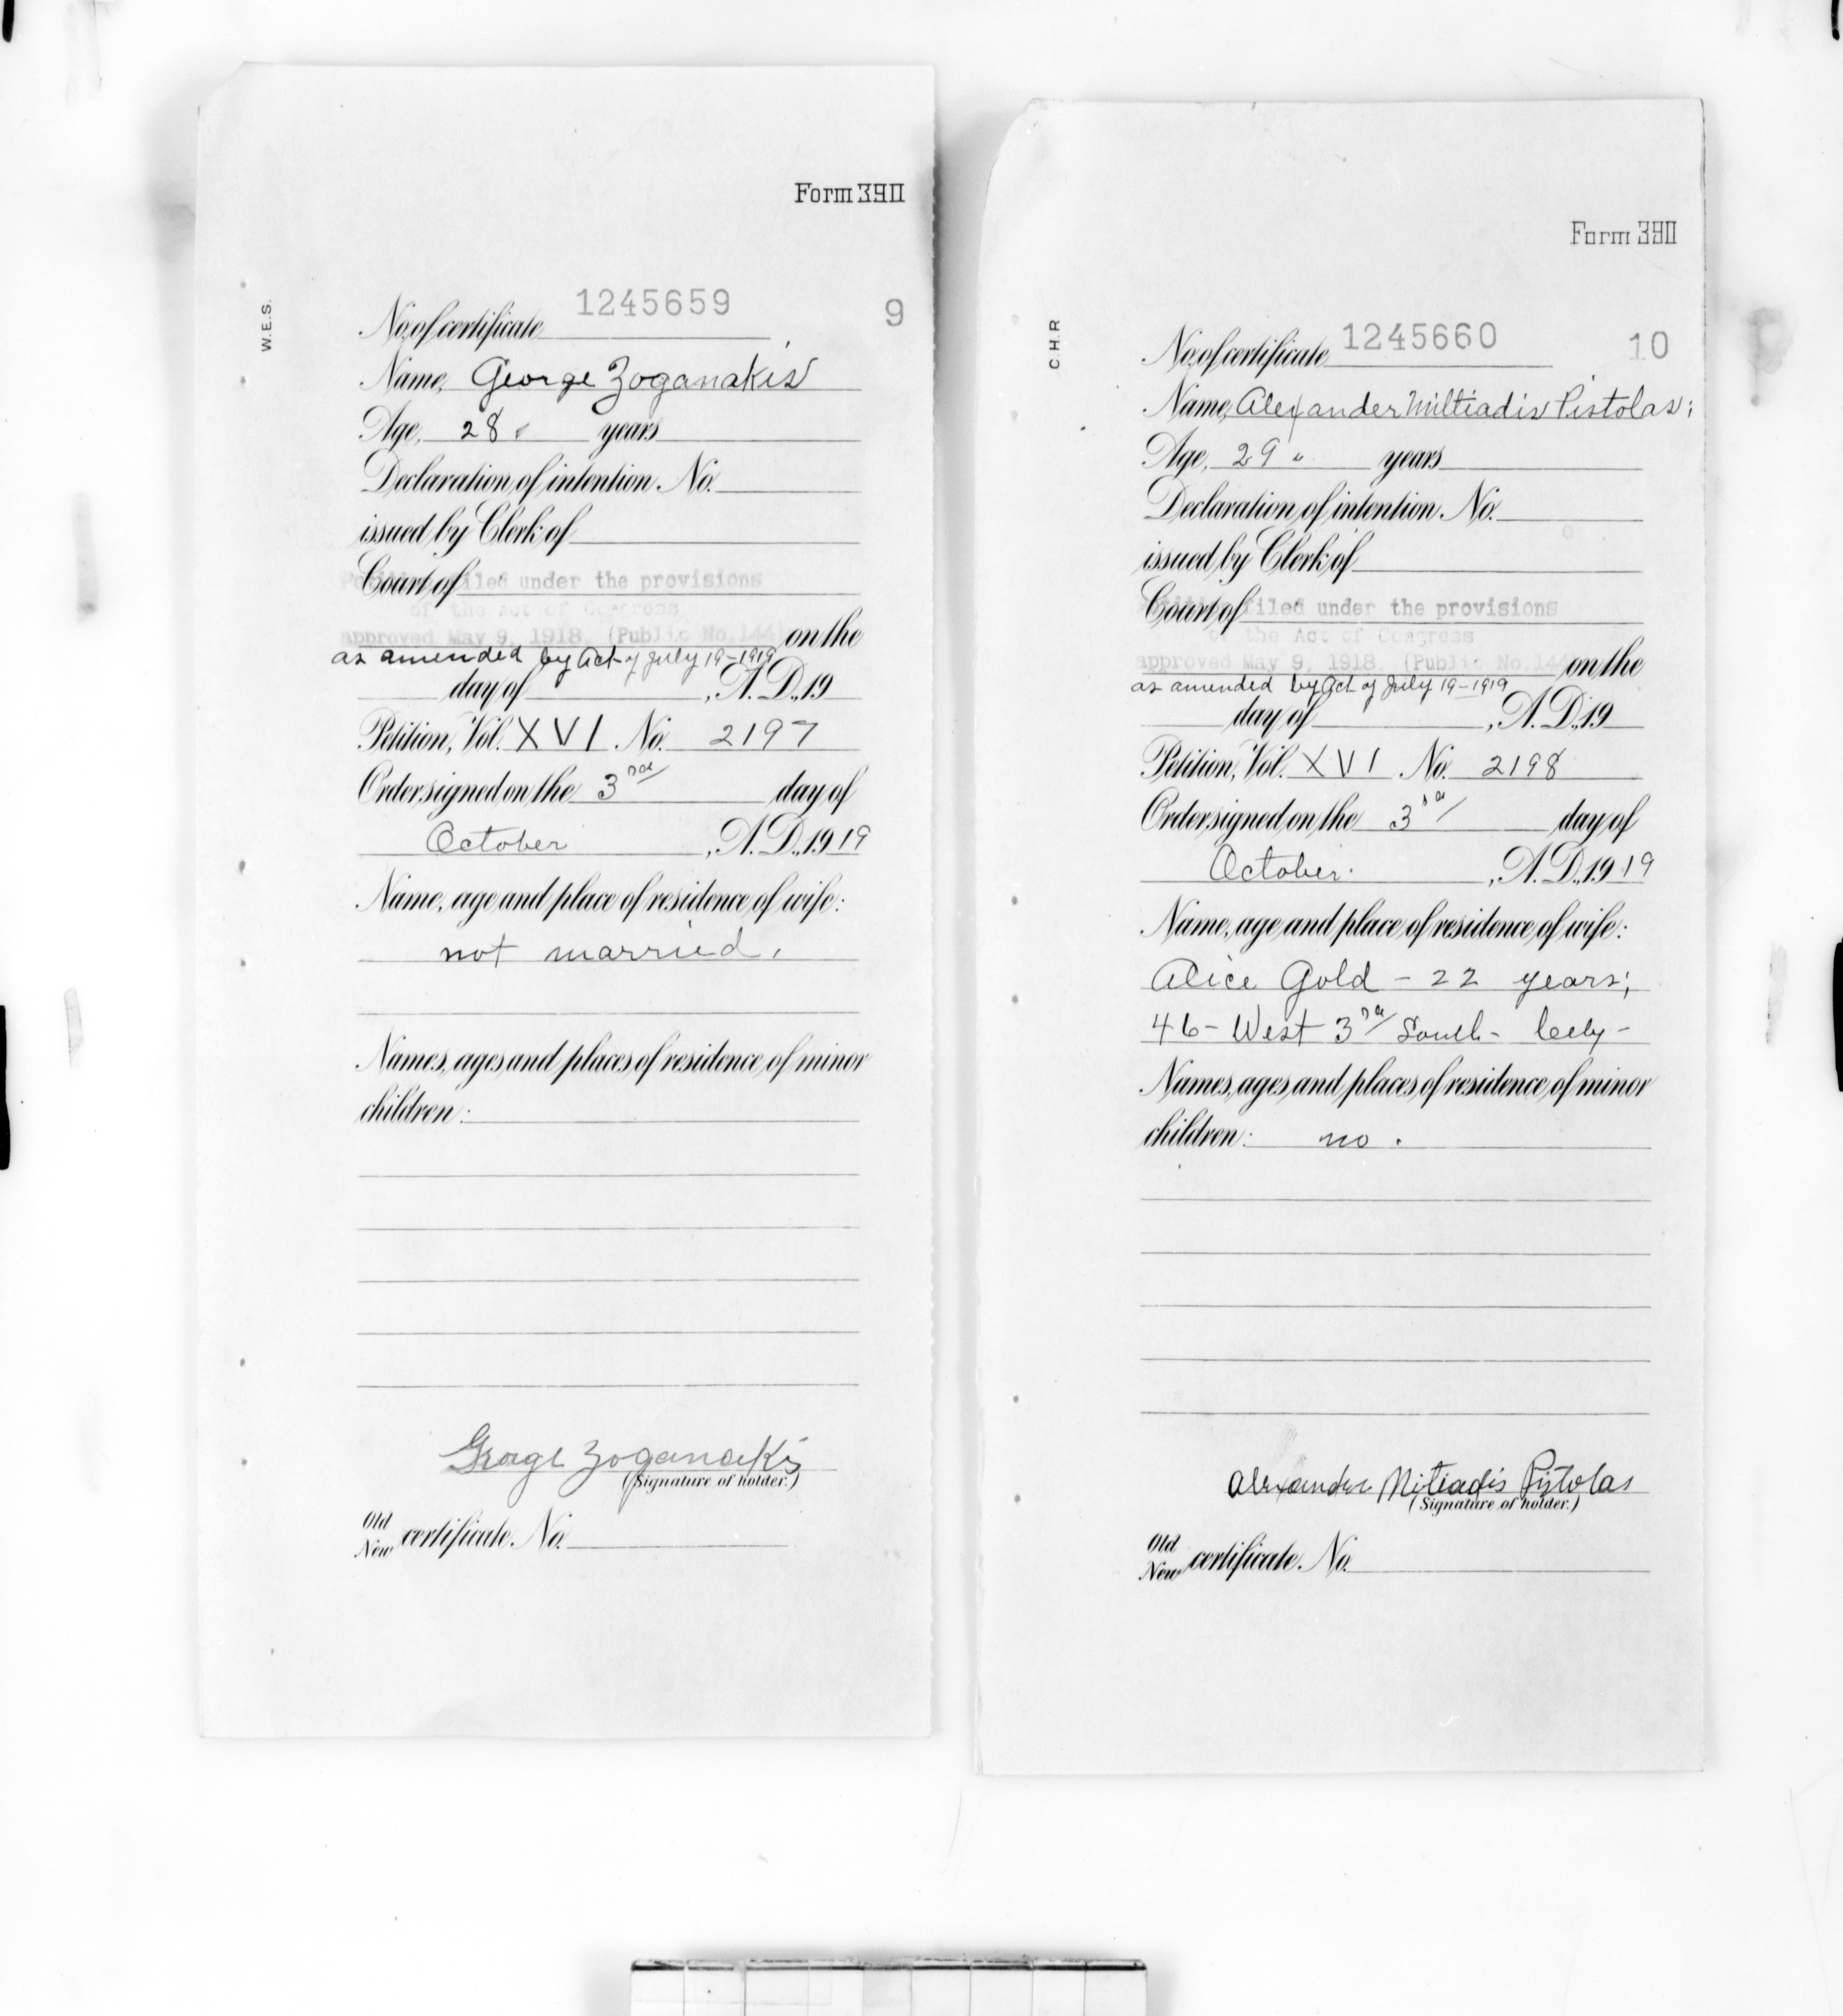 Form 390
W.E.S.
No. of certificate 1245659 9
Name, George Zoganakis
Age, 28 years
Declaration of intention No.
issued by Clerk of
Court of
filed under the provisions
of the Act of Congress
approved May 9, 1918. (Public No.144) on the
as amended by Act of July 19-1919
day of , A.D., 19
Petition, Vol. XVI No. 2197
Order signed on the 3rd day of
October , A.D., 1919
Name, age and place of residence of wife:
not married.
Names, ages and places of residence of minor
children:
George Zoganakis
(Signature of holder.)
Old
New certificate No.
Form 390
C.H.R
No. of certificate 1245660 10
Name, Alexander Miltiadis Pistolas;
Age, 29 years
Declaration of intention No.
issued by Clerk of
Court of
filed under the provisions
of the Act of Congress
approved May 9, 1918. (Public No.144) on the
as amended by Act of July 19-1919
day of , A.D., 19
Petition, Vol. XVI No. 2198
Order signed on the 3rd day of
October. , A.D., 1919
Name, age and place of residence of wife:
Alice Gold - 22 years;
46- West 3rd South -
Names, ages and places of residence of minor
children: no.
Alexander Mitiadis Pistolas
(Signature of holder.)
Old
New certificate No.